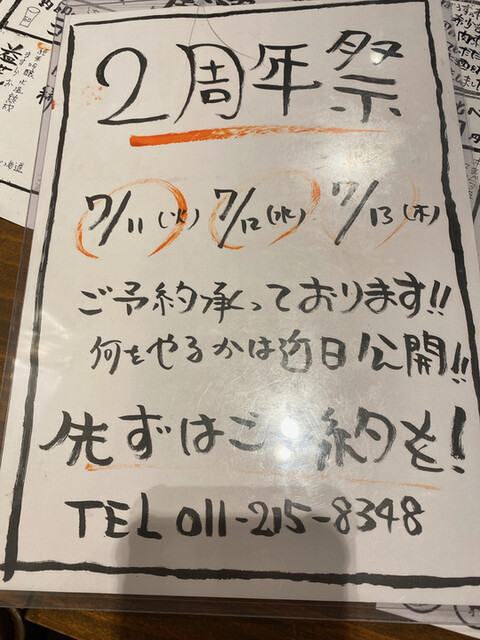 2周年祭
7/11(火) 7/12(水) 7/13(木)
ご予約承っております!!
何をやるかは近日公開!!
先ずはご予約を!
TEL 011-215-8348